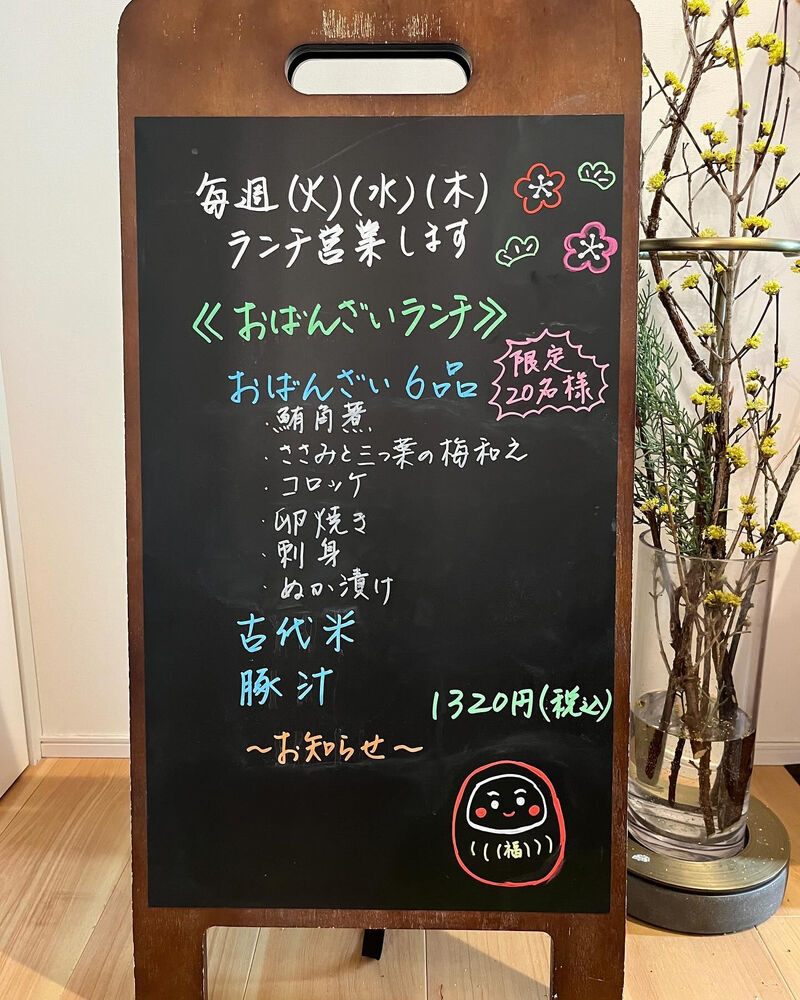 毎週(火)(水)(木)
ランチ営業します
≪おばんざいランチ≫
限定
20名様
おばんざい6品
・鮪角煮
・ささみと三つ葉の梅和え
・コロッケ
・卵焼き
・刺身
・ぬか漬け
古代米
豚汁
1320円(税込)
〜お知らせ〜
(((福)))